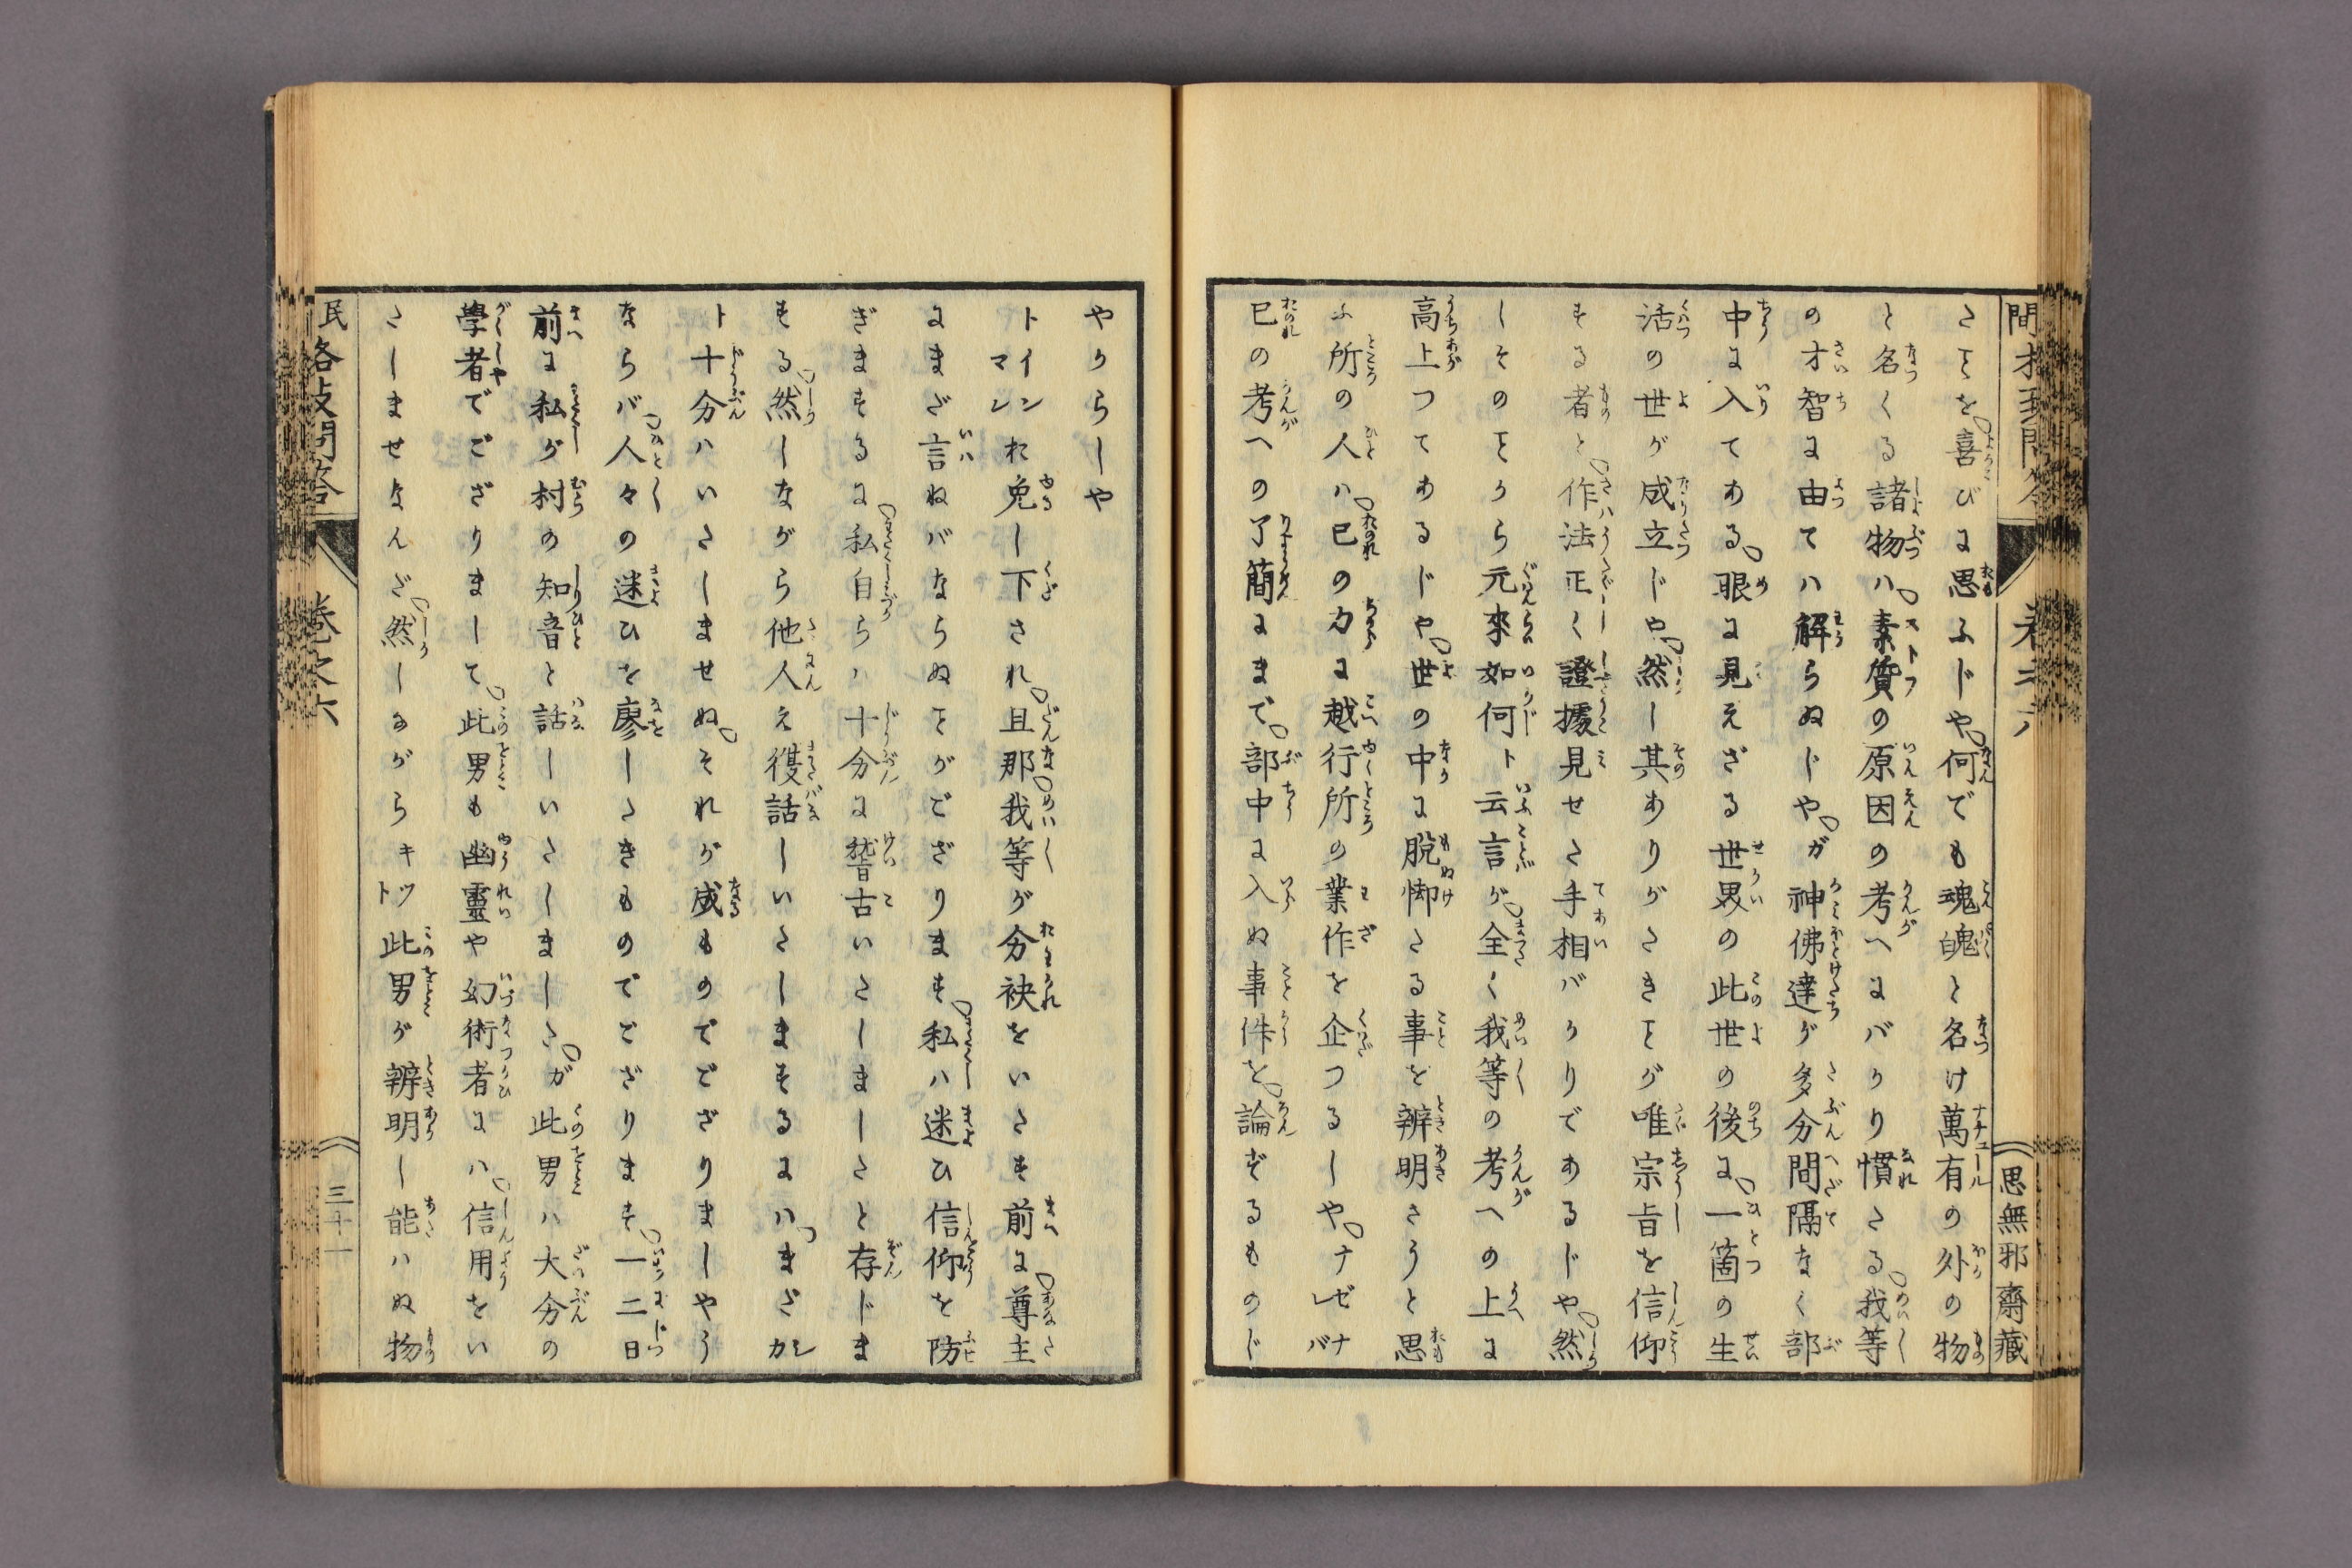 さ𪜈を喜びに思ふじや何でも魂魄と名け萬有の外の物
と名くる諸物ハ素質の原因の考へにバかり慣さる我等
の才智に由てハ解らぬじやガ神佛達が多分間隔なく部
中に入てある眼に見えざる世界の此世の後に一箇の生
活の世が成立じや然し其ありがさき𪜈が唯宗旨を信仰
する者と作法正く證據見せさ手相バかりであるじや然
しその𪜈から元來如何ト云言が全く我等の考への上に
高上つてあるじや世の中に脱怈さる事を辨明さうと思
ふ所の人ハ已の力に越行所の業作を企つるしやナゼナレバ
已の考への了簡にまで部中に入ぬ事件を論ずるものじ
やからしや
トインマンれ免し下され且那我等が分袂をいさす前に尊主
にまだ言ねバならぬ𪜈がござります私ハ迷ひ信仰を防
ぎまするに私自らハ十分に稽古いさしましさと存じま
する然しながら他人え復話しいさしまするにハまさカシ
ト十分ハいさしませぬそれが成ものでござりましやう
ならバ人々の迷ひを廖しさきものでござります一二日
前に私が村の知音と話しいさしましさガ此男ハ大分の
學者でござりまして此男も幽靈や幻術者にハ信用をい
さしませなんだ然しながらキツト此男が辨明し能ハぬ物
思無邪齋藏
民格致問答
巻之六
三十一